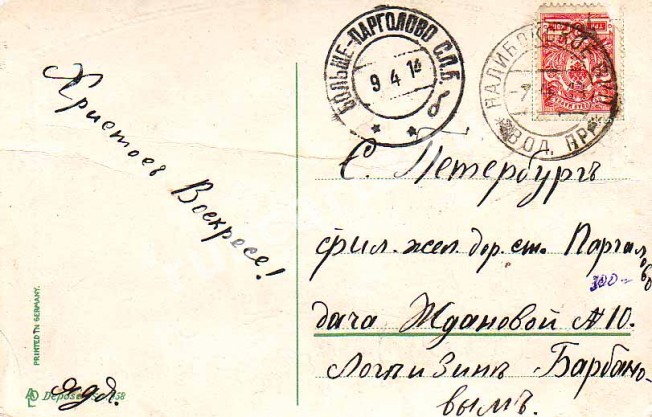 Христосъ
Воскресе!
дядя.
PRINTED IN GERMANY.
БОЛЬШЕ-ПАРГОЛОВО С.П.Б.
9 4 14
НАЛИБОКСКОЕ
ВОЛ. ПР.
С. Петербургъ
фил. жел. дор. ст. Паргалово
300-
дача Ждановой №10.
Барбано-
вымъ.